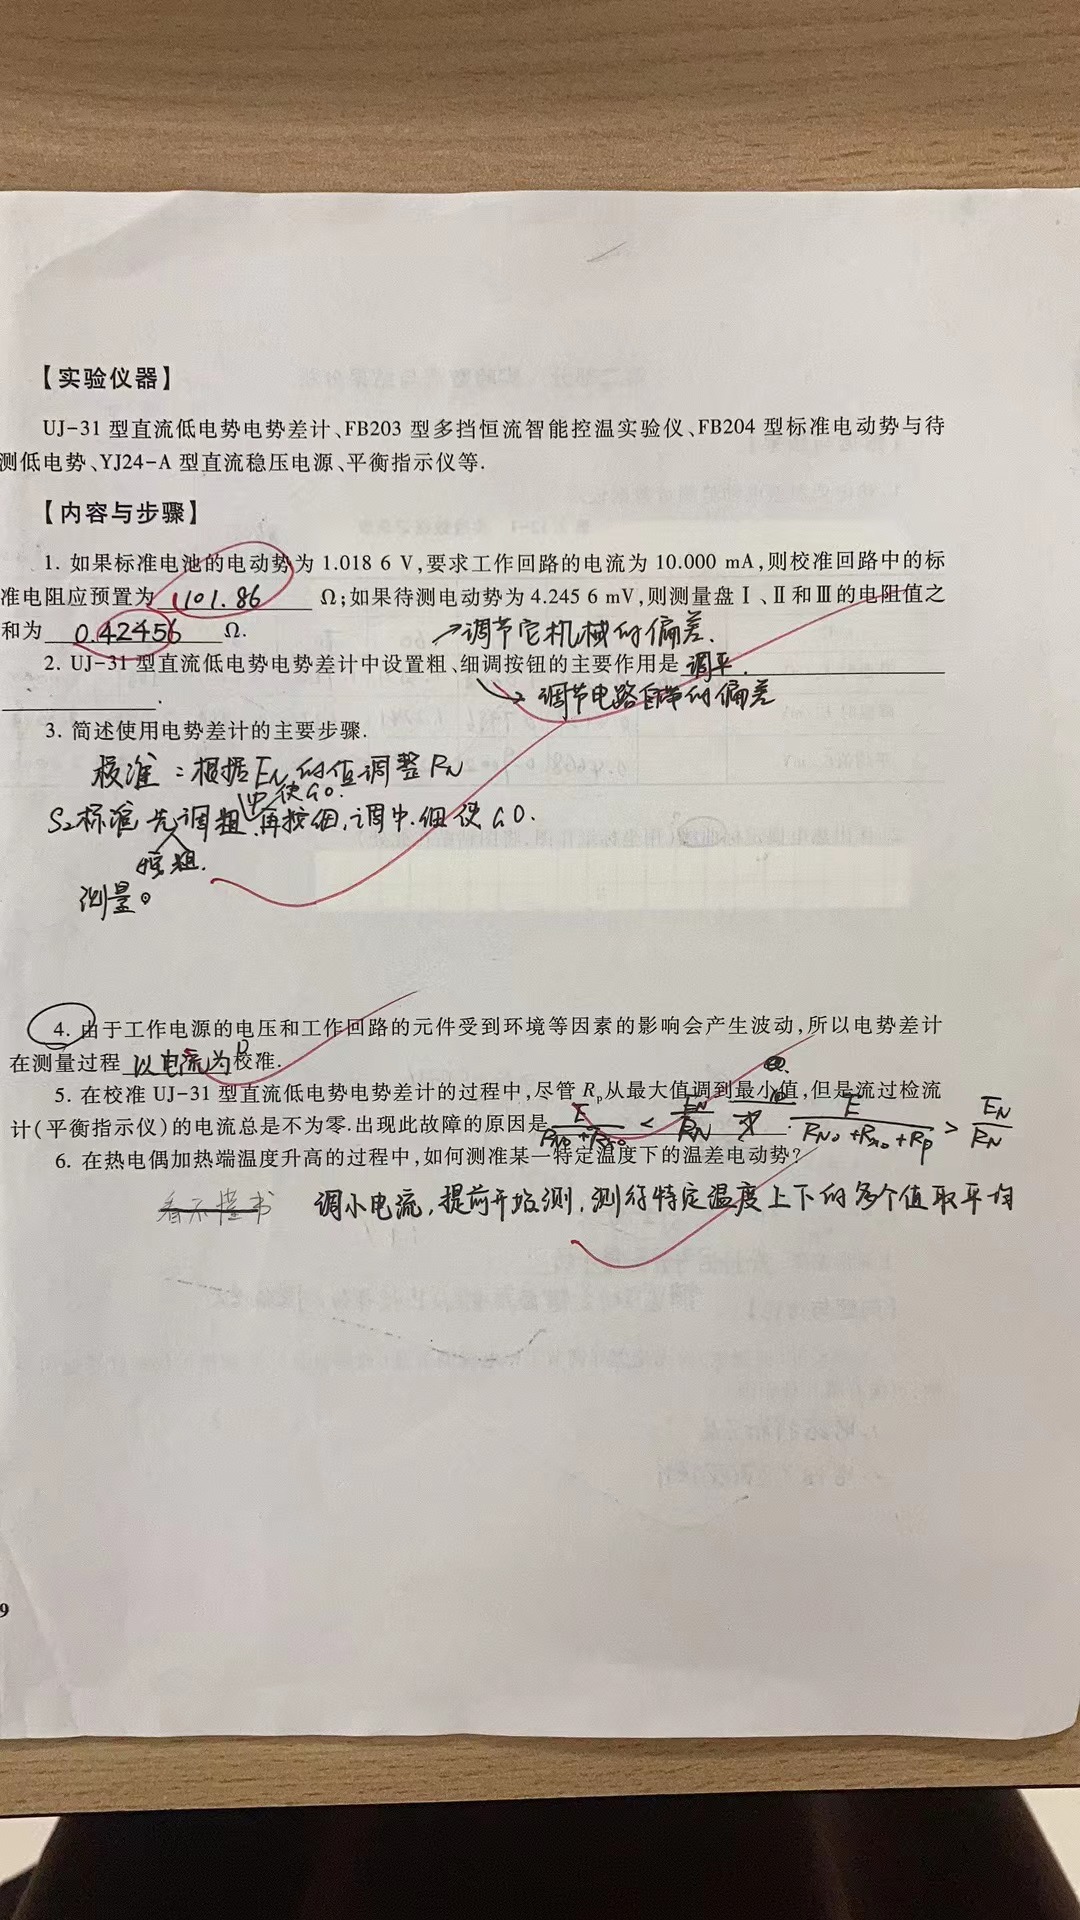 【实验仪器】
UJ-31 型直流低电势电势差计、FB203 型多挡恒流智能控温实验仪、FB204 型标准电动势与待
测低电势、YJ24-A 型直流稳压电源、平衡指示仪等.
【内容与步骤】
1. 如果标准电池的电动势为 1.018 6 V,要求工作回路的电流为 10.000 mA,则校准回路中的标
准电阻应预置为 101.86 Ω;如果待测电动势为 4.245 6 mV,则测量盘Ⅰ、Ⅱ和Ⅲ的电阻值之
和为 0.42456 Ω.
→调节它机械的偏差.
2. UJ-31 型直流低电势电势差计中设置粗、细调按钮的主要作用是 调平.
.
→调节电路自带的偏差
3. 简述使用电势差计的主要步骤.
校准:根据EN的值调整RN
中使G0.
S2标准 先调粗.再按细,调中.细使G0.
按粗.
测量。
4. 由于工作电源的电压和工作回路的元件受到环境等因素的影响会产生波动,所以电势差计
在测量过程 以电流为 校准.
5. 在校准 UJ-31 型直流低电势电势差计的过程中,尽管 Rp从最大值调到最小值,但是流过检流
计(平衡指示仪)的电流总是不为零.出现此故障的原因是 E/(RN0+Rx0) < EN/RN 或 E/(RN0+Rx0+Rp) > EN/RN
6. 在热电偶加热端温度升高的过程中,如何测准某一特定温度下的温差电动势?
看不懂书 调小电流,提前开始测,测待特定温度上下的多个值取平均
9